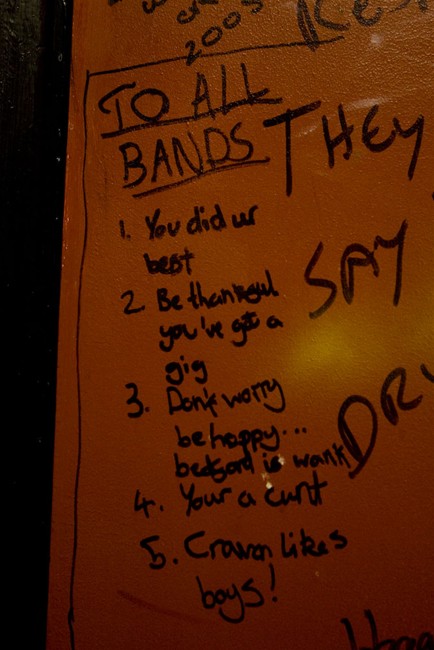 2005
TO ALL
BANDS
1. You did ur
best
2 Be thankful
you've got a
gig
3. Don't worry
be happy...
bedford is wank
4. Your a cunt
5. Crawn likes
boys!
THEY
SAY